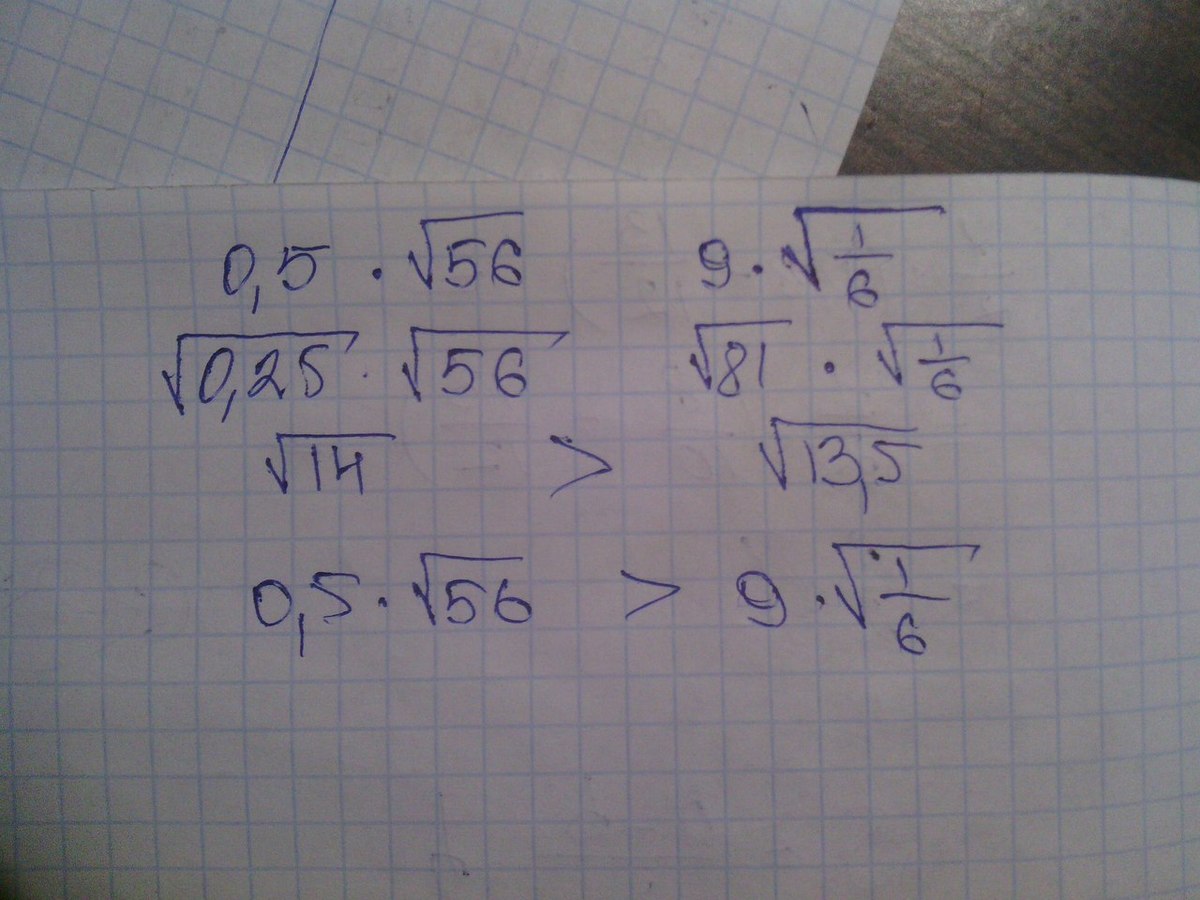 0,5 · √56 9 · √1/6
√0,25 · √56 √81 · √1/6
√14 > √13,5
0,5 · √56 > 9 · √1/6